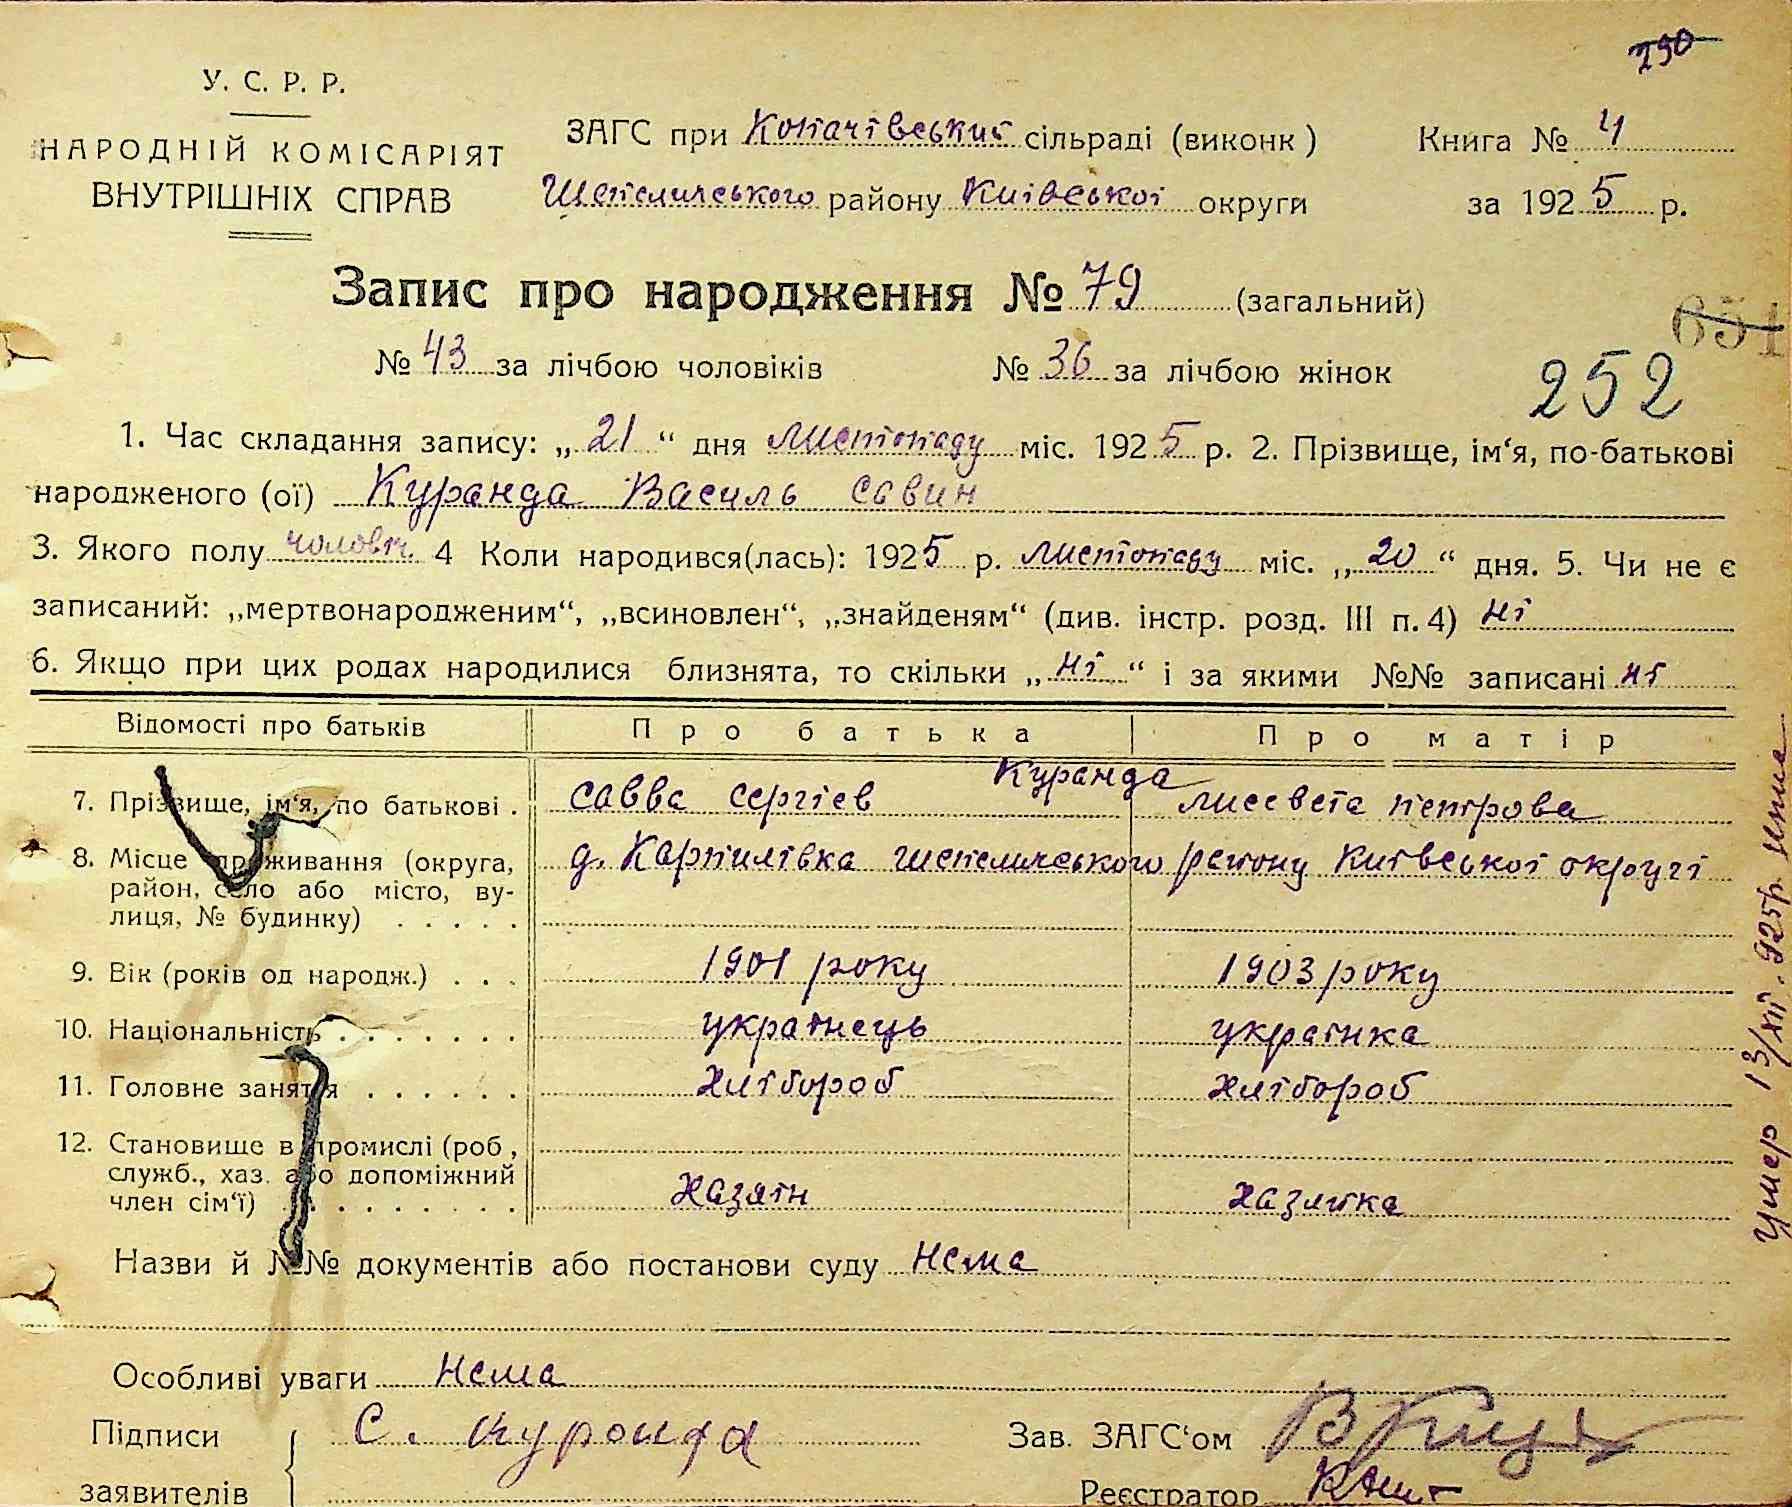 290
У. С. Р. Р.
НАРОДНІЙ КОМІСАРІЯТ
ВНУТРІШНІХ СПРАВ
ЗАГС при Копачівський сільраді (виконк)
Шепелицького району Київської округи
Книга № 4
за 1925 р.
Запис про народження № 79 (загальний)
651
№ 43 за лічбою чоловіків № 36 за лічбою жінок
252
1. Час складання запису: „21“ дня листопаду міс. 1925 р. 2. Прізвище, ім‘я, по-батькові
народженого (ої) Куранда Василь Савин
3. Якого полу чоловіч. 4 Коли народився(лась): 1925 р. листопаду міс. „20“ дня. 5. Чи не є
записаний: „мертвонародженим“, „всиновлен“, „знайденям“ (див. інстр. розд. III п. 4) ні
6. Якщо при цих родах народилися близнята, то скільки „ні“ і за якими №№ записані ні
Відомості про батьків Про батька Про матір
Куранда
7. Прізвище, ім‘я, по батькові . Савва Сергієв Лисевета Петрова
8. Місце проживання (округа, д. Карпилівка Шепелицького району Київської округі
район, село або місто, ву-
лиця, № будинку) . . . . .
9. Вік (років од народж.) . . . 1901 року 1903 року
10. Національність . . . . . . . українець українка
11. Головне заняття . . . . . . хлібороб хлібороб
12. Становище в промислі (роб,
служб., хаз. або допоміжний
член сім‘ї) . . . . . . . . . хазяїн хазяйка
Назви й №№ документів або постанови суду нема
Особливі уваги нема
Підписи С. Куронда Зав. ЗАГС‘ом
заявителів Реєстратор
Умер 13/XII. 925р.